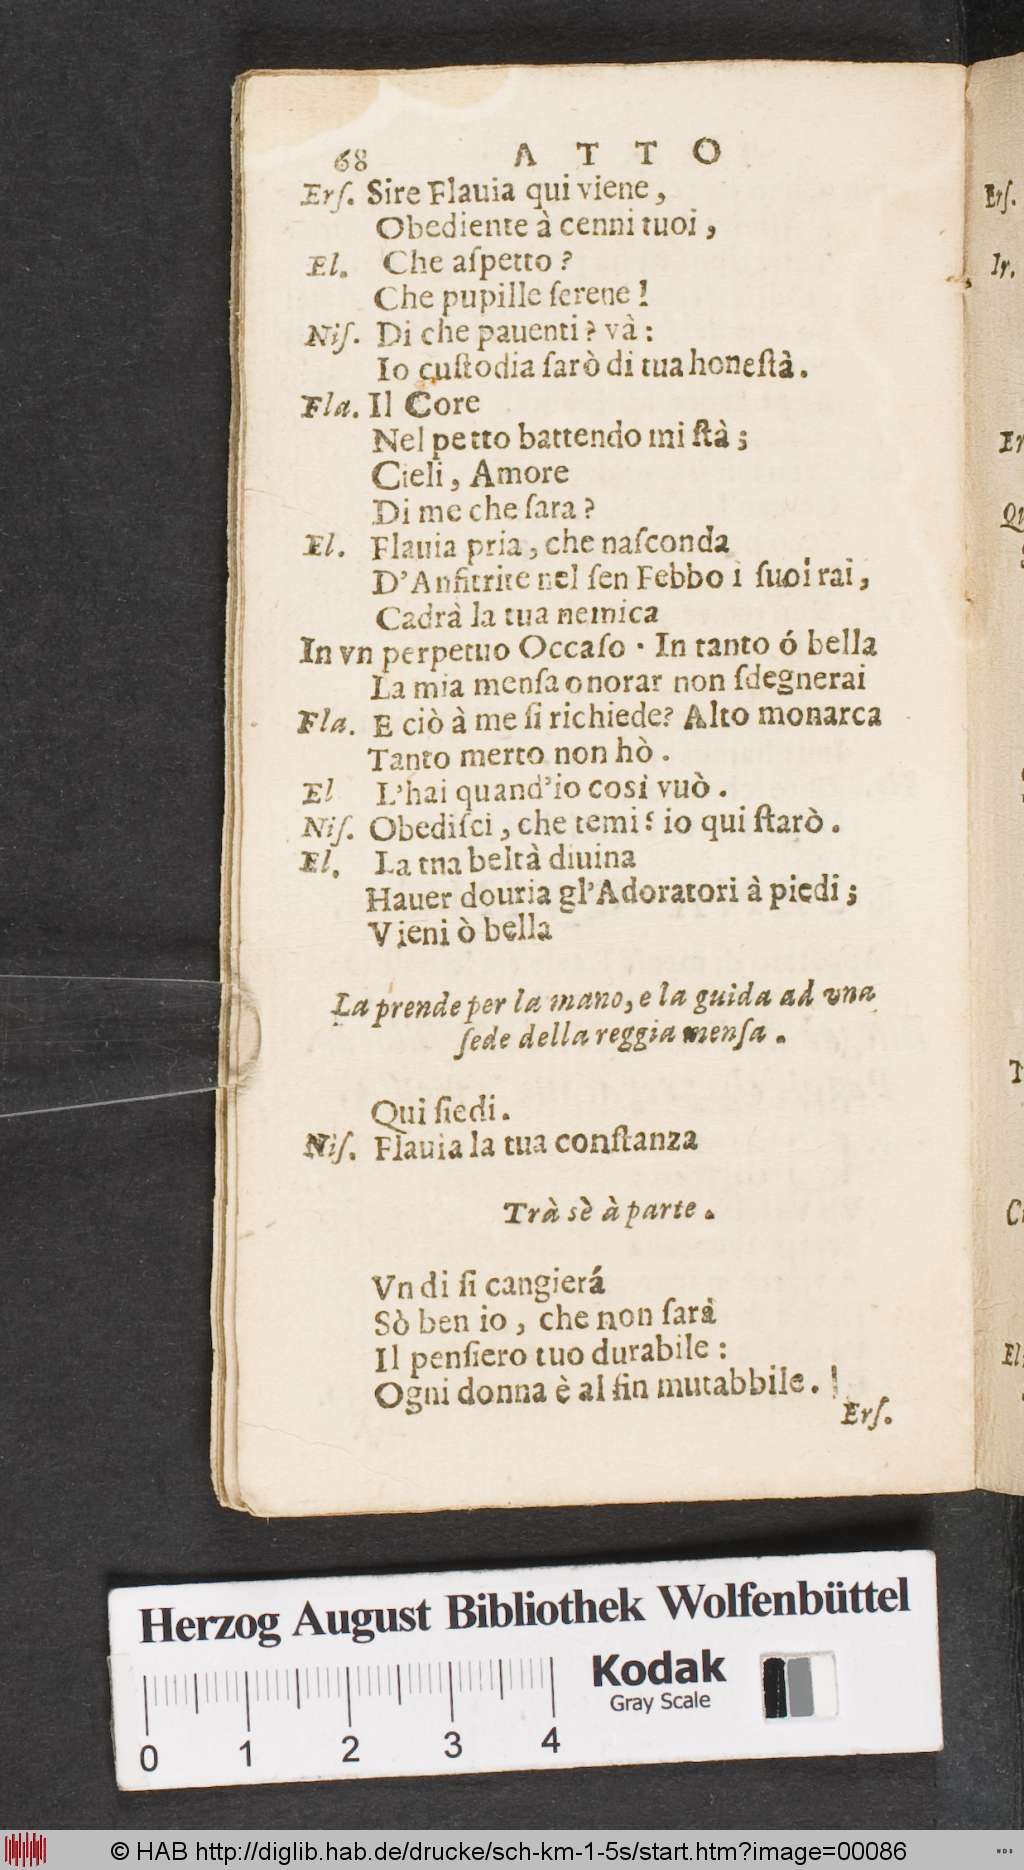 68 ATTO
Erſ. Sire Flauia qui viene,
Obediente à cenni tuoi,
El. Che aſpetto?
Che pupille ſerene!
Niſ. Di che pauenti? và:
Io cuſtodia ſarò di tua honeſtà.
Fla. Il Core
Nel petto battendo mi ſtà;
Cieli, Amore
Di me che ſara?
El. Flauia pria, che naſconda
D'Anfitrite nel ſen Febbo i ſuoi rai,
Cadrà la tua nemica
In vn perpetuo Occaſo. In tanto ó bella
La mia menſa onorar non ſdegnerai
Fla. E ciò à me ſi richiede? Alto monarca
Tanto merto non hò.
El L'hai quand'io cosi vuò.
Niſ. Obediſci, che temi? io qui ſtarò.
El. La tna beltà diuina
Hauer douria gl'Adoratori à piedi;
Vieni ò bella
La prende per la mano, e la guida ad vna
ſede della reggia menſa.
Qui ſiedi.
Niſ. Flauia la tua conſtanza
Trà sè à parte.
Vn di ſi cangierá
Sò ben io, che non ſarà
Il penſiero tuo durabile:
Ogni donna è al fin mutabbile.
Erſ.
Erſ.
Ir.
Herzog August Bibliothek Wolfenbüttel
Kodak
Gray Scale
0 1 2 3 4
© HAB http://diglib.hab.de/drucke/sch-km-1-5s/start.htm?image=00086